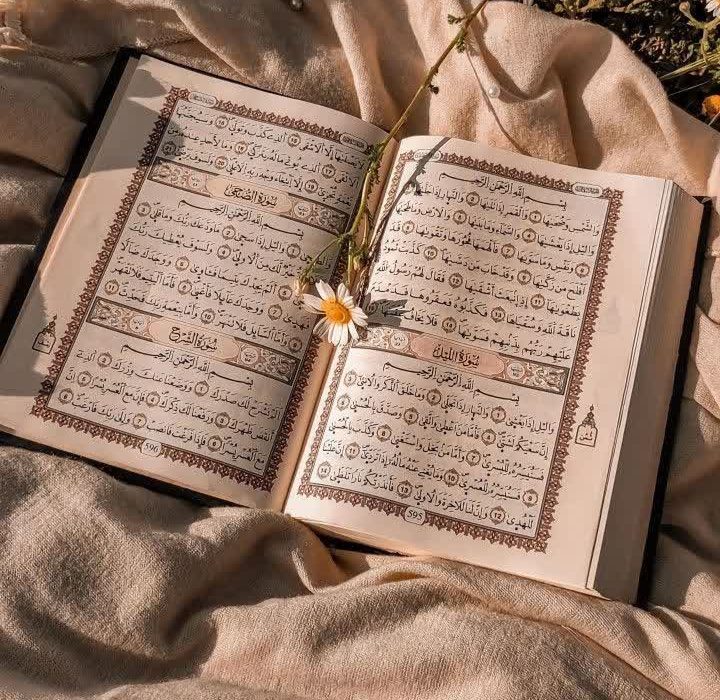 بِسْمِ اللَّهِ الرَّحْمَٰنِ الرَّحِيمِ
وَالشَّمْسِ وَضُحَىٰهَا ١ وَالْقَمَرِ إِذَا تَلَىٰهَا ٢ وَالنَّهَارِ إِذَا جَلَّىٰهَا ٣
وَالَّيْلِ إِذَا يَغْشَىٰهَا ٤ وَالسَّمَاءِ وَمَا بَنَىٰهَا ٥ وَالْأَرْضِ وَمَا طَحَىٰهَا
٦ وَنَفْسٍ وَمَا سَوَّىٰهَا ٧ فَأَلْهَمَهَا فُجُورَهَا وَتَقْوَىٰهَا ٨ قَدْ
أَفْلَحَ مَن زَكَّىٰهَا ٩ وَقَدْ خَابَ مَن دَسَّىٰهَا ١٠ كَذَّبَتْ ثَمُودُ
بِطَغْوَىٰهَا ١١ إِذِ انبَعَثَ أَشْقَىٰهَا ١٢ فَقَالَ لَهُمْ رَسُولُ اللَّهِ
نَاقَةَ اللَّهِ وَسُقْيَٰهَا ١٣ فَكَذَّبُوهُ فَعَقَرُوهَا فَدَمْدَمَ
عَلَيْهِمْ رَبُّهُم بِذَنبِهِمْ فَسَوَّىٰهَا ١٤ يَخَافُ عُقْبَٰهَا
سُورَةُ اللَّيْلِ
بِسْمِ اللَّهِ الرَّحْمَٰنِ الرَّحِيمِ
وَالَّيْلِ إِذَا يَغْشَىٰ ١ وَالنَّهَارِ إِذَا تَجَلَّىٰ ٢ وَمَا خَلَقَ الذَّكَرَ وَالْأُنثَىٰ ٣
إِنَّ سَعْيَكُمْ لَشَتَّىٰ ٤ فَأَمَّا مَنْ أَعْطَىٰ وَاتَّقَىٰ ٥ وَصَدَّقَ بِالْحُسْنَىٰ ٦
فَسَنُيَسِّرُهُ لِلْيُسْرَىٰ ٧ وَأَمَّا مَن بَخِلَ وَاسْتَغْنَىٰ ٨ وَكَذَّبَ بِالْحُسْنَىٰ ٩
فَسَنُيَسِّرُهُ لِلْعُسْرَىٰ ١٠ وَمَا يُغْنِي عَنْهُ مَالُهُ إِذَا تَرَدَّىٰ ١١ إِنَّ عَلَيْنَا
لَلْهُدَىٰ ١٢ وَإِنَّ لَنَا لَلْآخِرَةَ وَالْأُولَىٰ ١٣ فَأَنذَرْتُكُمْ نَارًا تَلَظَّىٰ ١٤
٥٩٥
لَا يَصْلَىٰهَا إِلَّا الْأَشْقَى ١٥ الَّذِي كَذَّبَ وَتَوَلَّىٰ ١٦ وَسَيُجَنَّبُهَا
الْأَتْقَى ١٧ الَّذِي يُؤْتِي مَالَهُ يَتَزَكَّىٰ ١٨ وَمَا لِأَحَدٍ عِندَهُ مِن
نِّعْمَةٍ تُجْزَىٰ ١٩ إِلَّا ابْتِغَاءَ وَجْهِ رَبِّهِ الْأَعْلَىٰ ٢٠ وَلَسَوْفَ يَرْضَىٰ
سُورَةُ الضُّحَىٰ
بِسْمِ اللَّهِ الرَّحْمَٰنِ الرَّحِيمِ
وَالضُّحَىٰ ١ وَالَّيْلِ إِذَا سَجَىٰ ٢ مَا وَدَّعَكَ رَبُّكَ وَمَا قَلَىٰ ٣
خَيْرٌ لَّكَ مِنَ الْأُولَىٰ ٤ وَلَسَوْفَ يُعْطِيكَ رَبُّكَ
أَلَمْ يَجِدْكَ يَتِيمًا فَآوَىٰ ٦ وَوَجَدَكَ ضَالًّا
فَهَدَىٰ ٧ وَوَجَدَكَ عَائِلًا فَأَغْنَىٰ ٨ فَأَمَّا الْيَتِيمَ فَلَا تَقْهَرْ
٩ وَأَمَّا السَّائِلَ فَلَا تَنْهَرْ ١٠ وَأَمَّا بِنِعْمَةِ رَبِّكَ فَحَدِّثْ ١١
سُورَةُ الشَّرْحِ
بِسْمِ اللَّهِ الرَّحْمَٰنِ الرَّحِيمِ
أَلَمْ نَشْرَحْ لَكَ صَدْرَكَ ١ وَوَضَعْنَا عَنكَ وِزْرَكَ ٢ الَّذِي
أَنقَضَ ظَهْرَكَ ٣ وَرَفَعْنَا لَكَ ذِكْرَكَ ٤ فَإِنَّ مَعَ الْعُسْرِ يُسْرًا ٥ إِنَّ
مَعَ الْعُسْرِ يُسْرًا ٦ فَإِذَا فَرَغْتَ فَانصَبْ ٧ وَإِلَىٰ رَبِّكَ فَارْغَب ٨
٥٩٦